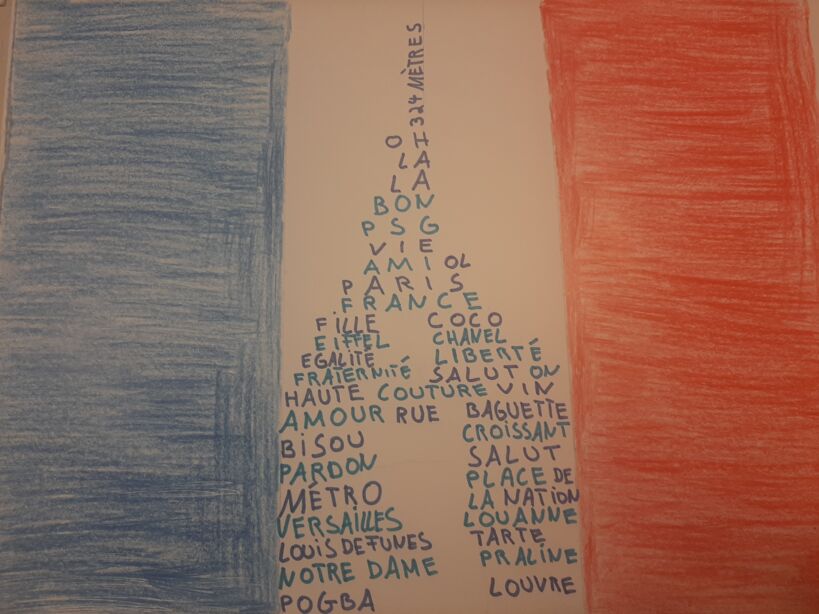 324 MÈTRES
O H
L A
L A
BON
PSG
VIE
AMI OL
PARIS
FRANCE
FILLE COCO
EIFFEL CHANEL
EGALITÉ LIBERTÉ
FRATERNITÉ SALUT ON
HAUTE COUTURE VIN
AMOUR RUE BAGUETTE
BISOU CROISSANT
PARDON SALUT
MÉTRO PLACE DE
VERSAILLES LA NATION
LOUIS DE FUNES LOUANNE
NOTRE DAME TARTE
POGBA PRALINE
LOUVRE